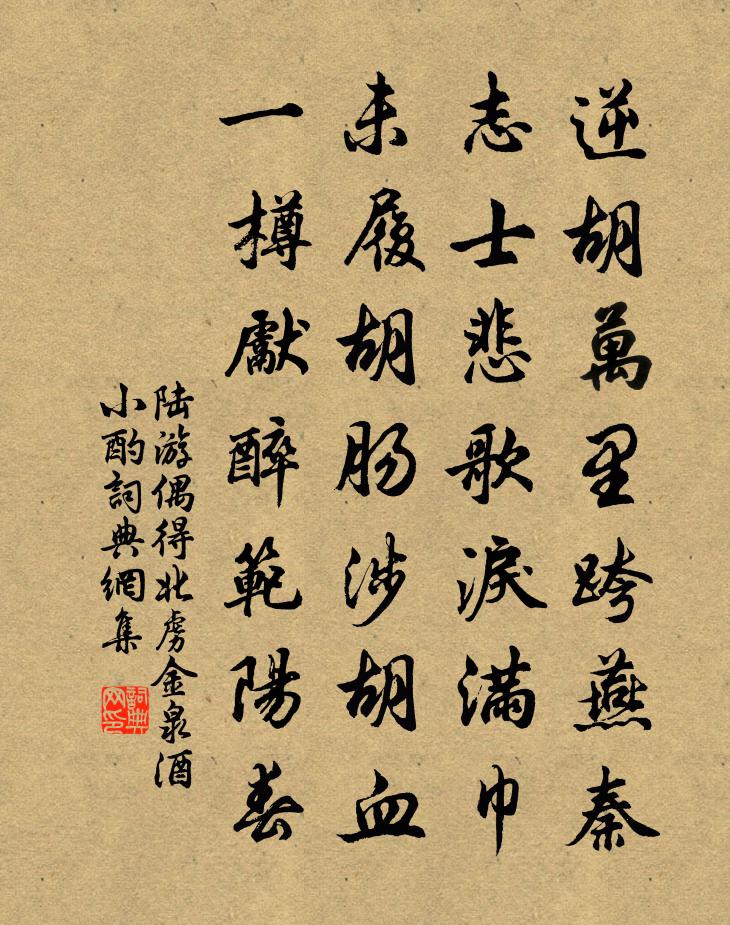 逆胡萬里跨燕秦
志士悲歌淚滿巾
未履胡肠涉胡血
一樽獻醉範陽春
陆游偶得北虜金泉酒
小酌詞典網集
詞典网印